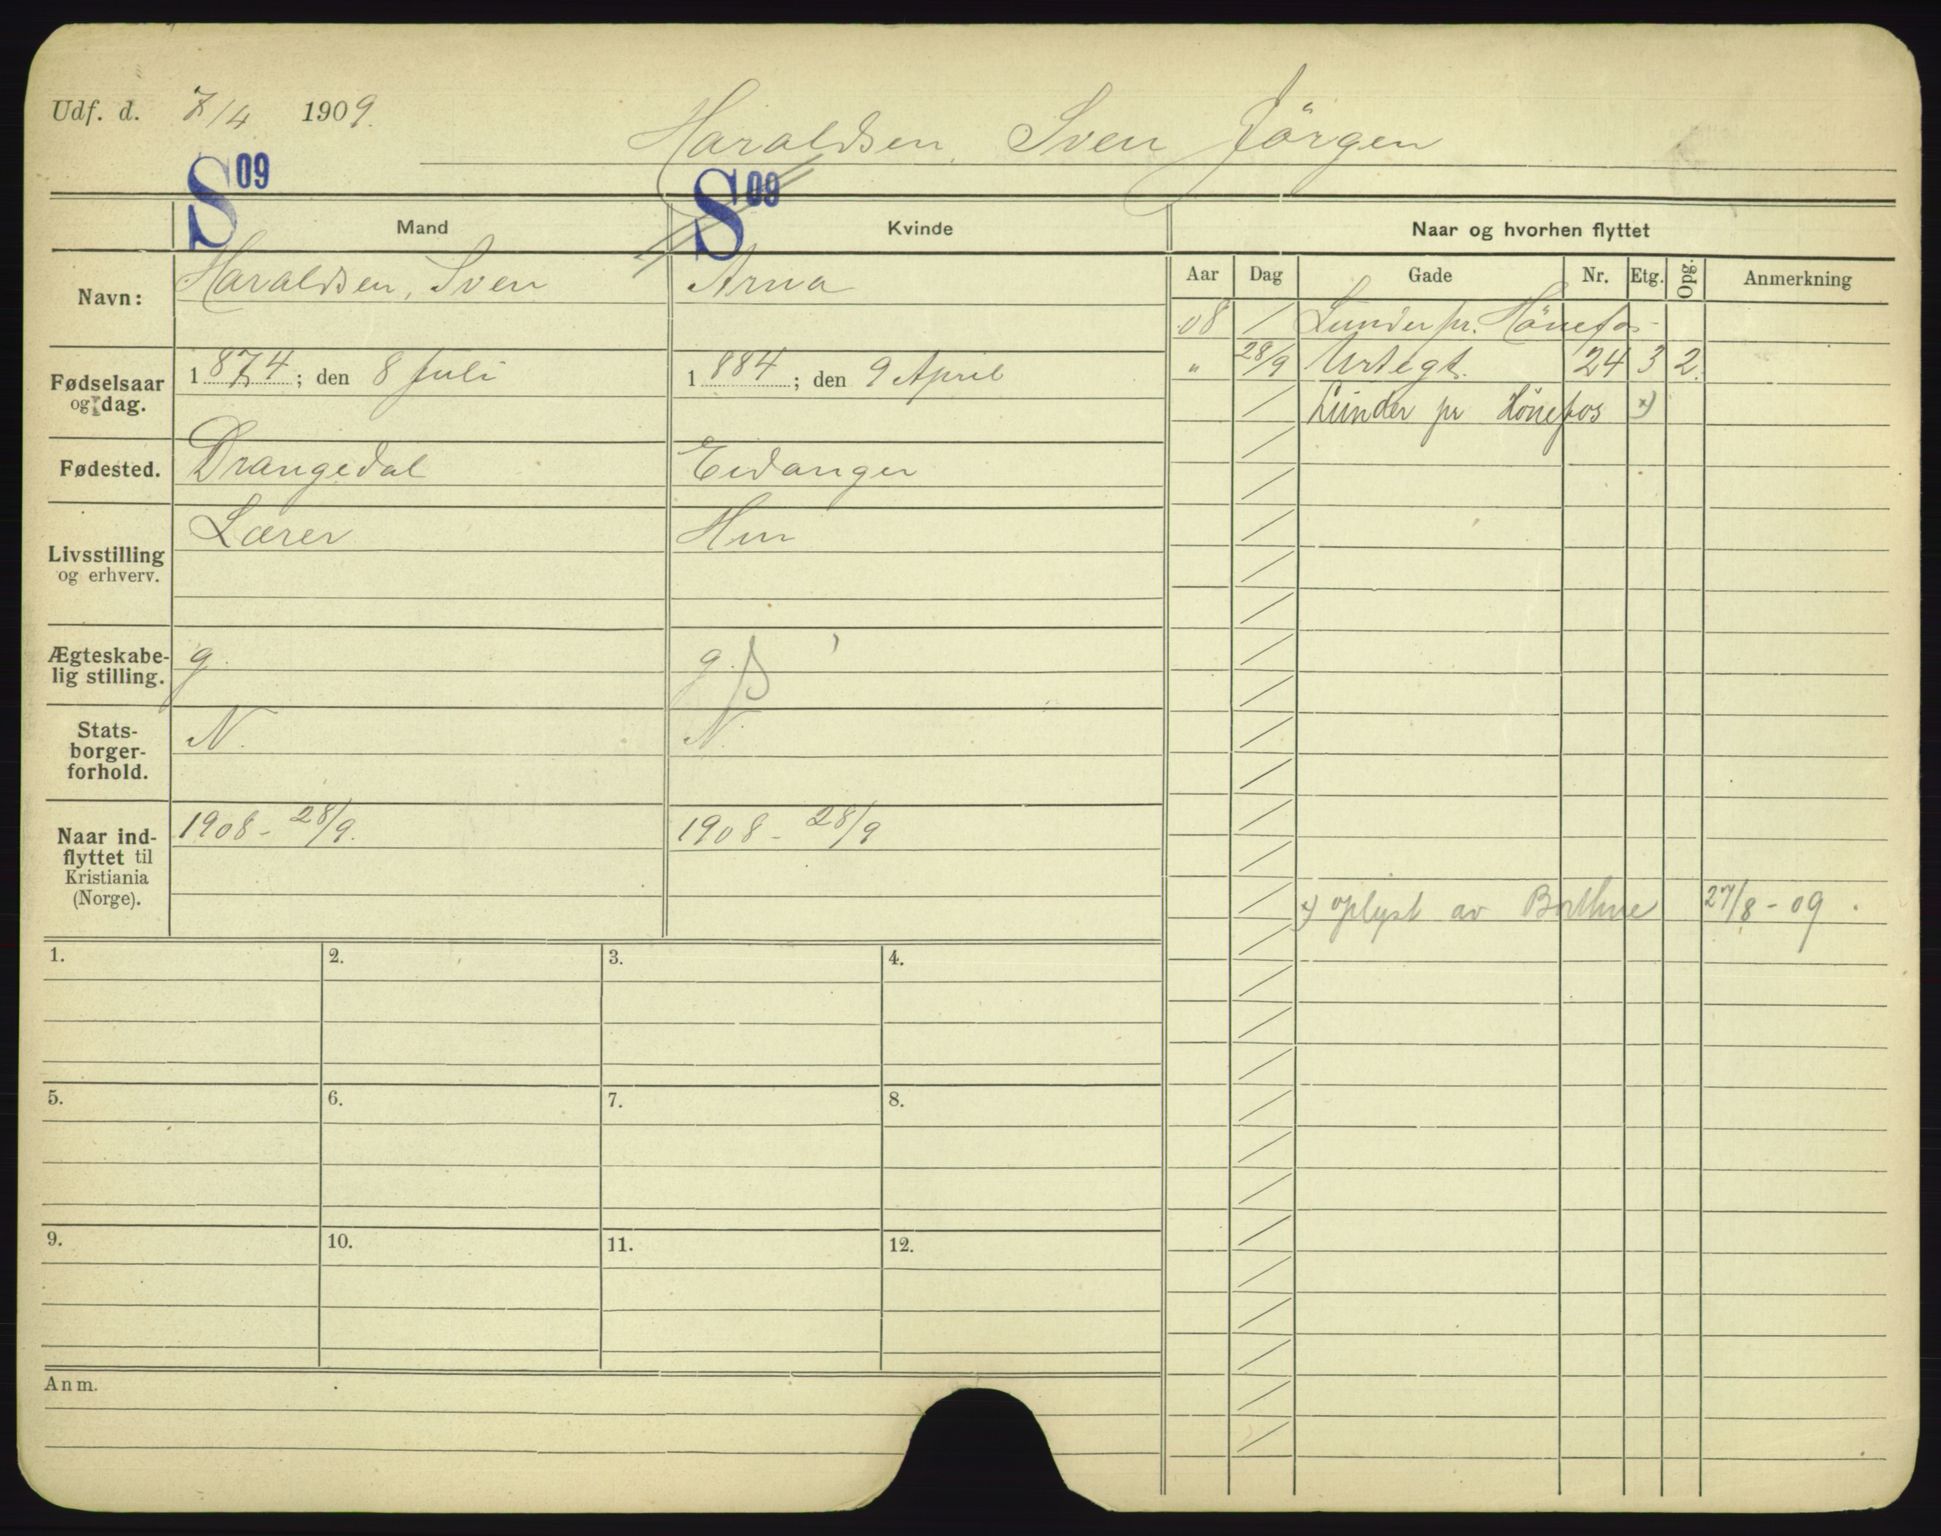 Udf. d. 7/4 1909.
Haraldsen, Sven Jörgen
S 09
S 09
Mand
Kvinde
Naar og hvorhen flyttet
Navn:
Haraldsen, Sven
Arna
Aar
Dag
Gade
Nr.
Etg.
Opg.
Anmerkning
08 / Lunder pr. Hönefos
" 28/9 Urtegt. 24 3 2.
/ Lunder pr Hönefos x)
Fødselsaar
og dag.
1874; den 8 Juli
1884; den 9 April
Fødested.
Drangedal
Eidanger
Livsstilling
og erhverv.
Lærer
Hm
Ægteskabe-
lig stilling.
g.
g.
Stats-
borger-
forhold.
N.
N.
Naar ind-
flyttet til
Kristiania
(Norge).
1908 - 28/9.
1908 - 28/9
x) oplyst av 27/8 - 09.
1.
2.
3.
4.
5.
6.
7.
8.
9.
10.
11.
12.
Anm.